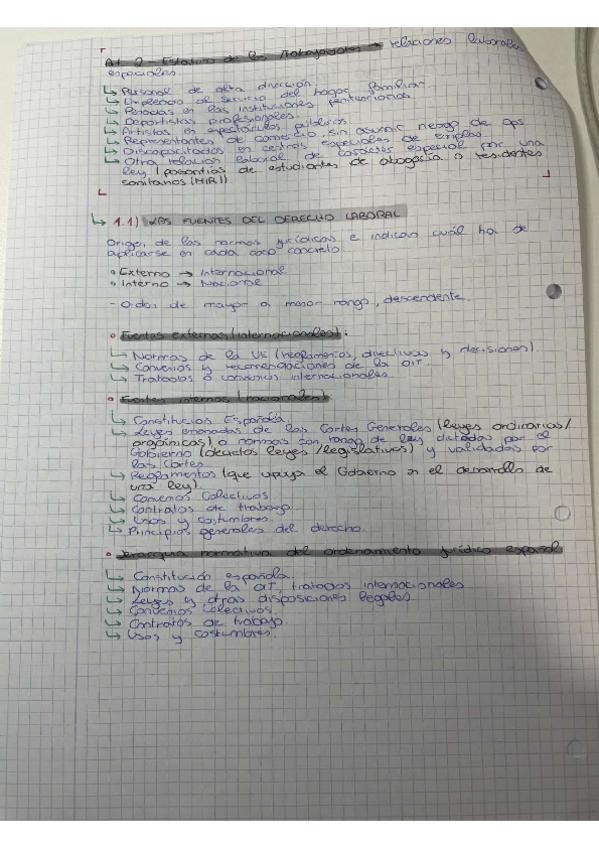 Art. 2 - Estatuto de los Trabajadores → relaciones laborales
especiales
↳ Personal de alta dirección.
↳ Empleados al servicio del hogar familiar.
↳ Penados en las instituciones penitenciarias.
↳ Deportistas profesionales.
↳ Artistas en espectáculos públicos
↳ Representantes de comercio, sin asumir riesgo de ops
↳ Discapacitados en centros especiales de empleo.
↳ Otra relación laboral de carácter especial por una
ley (pasantías de estudiantes de abogacía o residentes
sanitarios (MIR))
↳ 1.1) LAS FUENTES DEL DERECHO LABORAL
Origen de las normas jurídicas e indican cuál ha de
aplicarse en cada caso concreto.
• Externo → Internacional
• Interno → Nacional
- Orden de mayor a menor rango, descendente.
• Fuentes externas (internacionales):
↳ Normas de la UE (reglamentos, directivas y decisiones)
↳ Convenios y recomendaciones de la OIT.
↳ Tratados o convenios internacionales.
• Fuentes internas (nacionales)
↳ Constitución Española
↳ Leyes emanadas de las Cortes Generales (leyes ordinarias/
orgánicas) o normas con rango de ley dictadas por el
Gobierno (decretos leyes /legislativos) y validadas por
las Cortes.
↳ Reglamentos (que apoya el Gobierno en el desarrollo de
una ley).
↳ Convenios Colectivos
↳ Contratos de trabajo.
↳ Usos y costumbres.
↳ Principios generales del derecho.
• Jerarquía normativa del ordenamiento jurídico español
↳ Constitución española.
↳ Normas de la OIT, tratados internacionales
↳ Leyes y otras disposiciones legales.
↳ Convenios colectivos.
↳ Contratos de trabajo.
↳ Usos y costumbres.